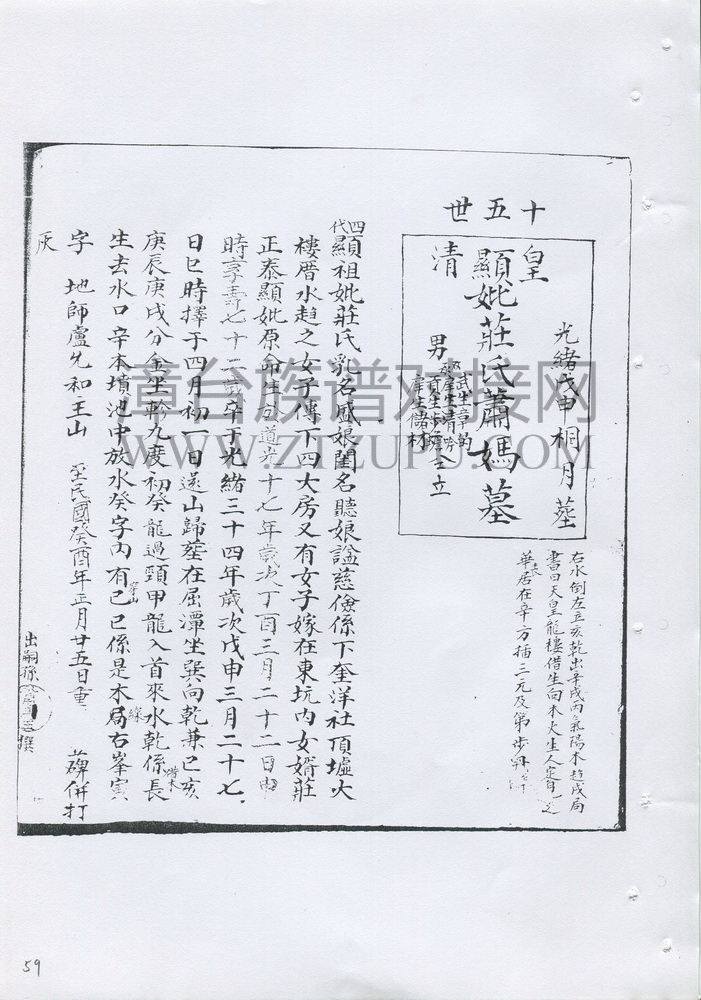 十五世
光緒戊申桐月塟
皇
清
顯妣莊氏蕭媽墓
男
武生章的
庠生清
貢生步
庠生儲材
立
右水倒左立亥乾出辛戌丙氣陽木趋戌局
書曰天皇龍樓借生向本大生人定
華居在辛方插三元及第步
四代
顯祖妣莊氏乳名盛娘閨名聽娘諡慈儉係下奎洋社頂墟火
樓厝水趋之女子傳下四大房又有女子嫁在東坑內女婿莊
正泰顯妣原命生於道光十七年歲次丁酉三月二十二日申
時享壽七十二歲卒于光緒三十四年歲次戊申三月二十七
日巳時擇于四月初一日送山歸塟在屈潭坐巽向乾兼巳亥
庚辰庚戌分金坐軫九度初癸龍過頸甲龍入首來水乾係長
生去水口辛本墳池中放水癸字內有己巳係是木局右峯寅
字 地師盧先和主山 至民國癸酉年正月廿五日重 碑併打
灰
出嗣孫
撰
章台族谱对接网
WWW.ZTZUPU.COM
59